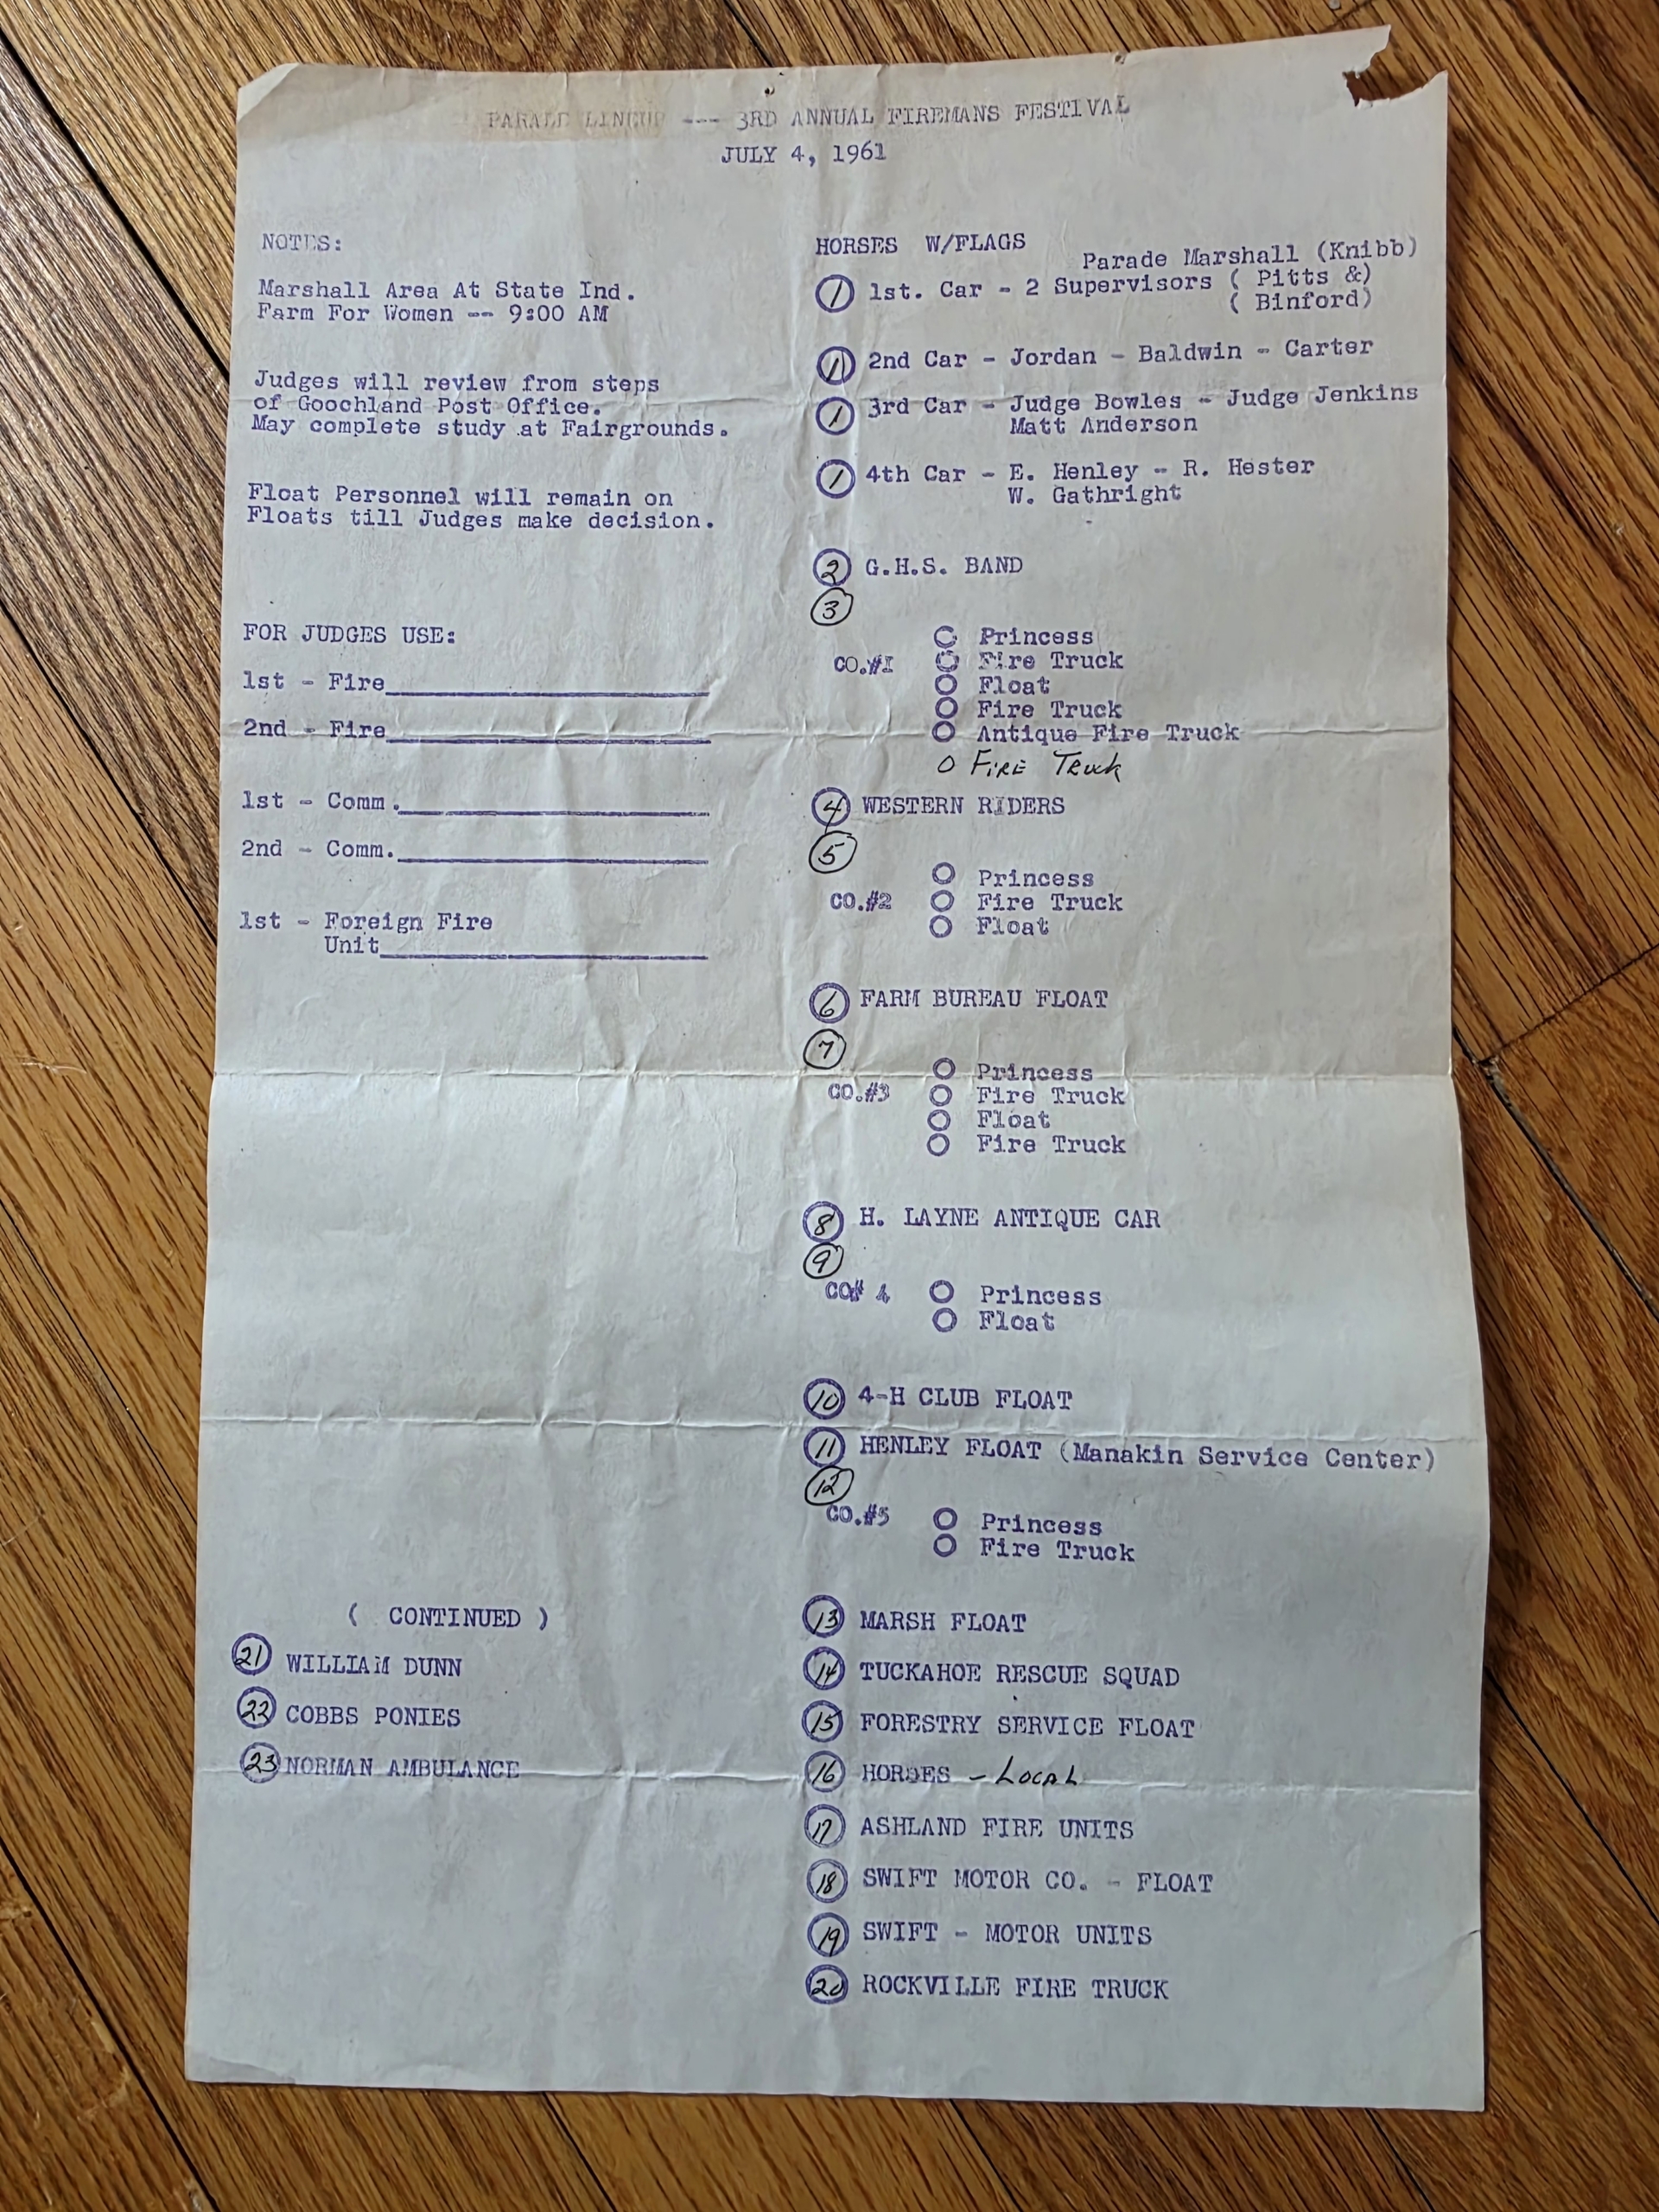 PARADE LINEUP --- 3RD ANNUAL FIREMANS FESTIVAL
JULY 4, 1961
NOTES:
Marshall Area At State Ind.
Farm For Women -- 9:00 AM
Judges will review from steps
of Goochland Post Office.
May complete study at Fairgrounds.
Float Personnel will remain on
Floats till Judges make decision.
FOR JUDGES USE:
1st - Fire
2nd - Fire
1st - Comm.
2nd - Comm.
1st - Foreign Fire
Unit
HORSES W/FLAGS
Parade Marshall (Knibb)
1 1st. Car - 2 Supervisors ( Pitts &)
( Binford)
1 2nd Car - Jordan - Baldwin - Carter
1 3rd Car - Judge Bowles - Judge Jenkins
Matt Anderson
1 4th Car - E. Henley - R. Hester
W. Gathright
2 G.H.S. BAND
3
Princess
CO.#1 Fire Truck
Float
Fire Truck
Antique Fire Truck
O FIRE Truck
4 WESTERN RIDERS
5
Princess
CO.#2 Fire Truck
Float
6 FARM BUREAU FLOAT
7
Princess
CO.#3 Fire Truck
Float
Fire Truck
8 H. LAYNE ANTIQUE CAR
9
CO# 4 Princess
Float
10 4-H CLUB FLOAT
11 HENLEY FLOAT (Manakin Service Center)
12
CO.#5 Princess
Fire Truck
13 MARSH FLOAT
14 TUCKAHOE RESCUE SQUAD
15 FORESTRY SERVICE FLOAT
16 HORSES - LOCAL
17 ASHLAND FIRE UNITS
18 SWIFT MOTOR CO. - FLOAT
19 SWIFT - MOTOR UNITS
20 ROCKVILLE FIRE TRUCK
( CONTINUED )
21 WILLIAM DUNN
22 COBBS PONIES
23 NORMAN AMBULANCE